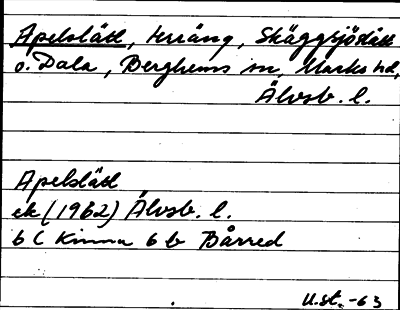 Apelslätt, terräng, Skäggsjöslätt
o. Dala, Berghems sn, Marks hd,
Älvsb. l.
Apelslätt
ek (1962) Älvsb. l.
6 C Kinna 6 b Bårred
U.st. -63